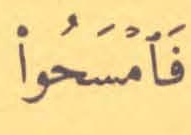 فَٱمۡسَحُواْ